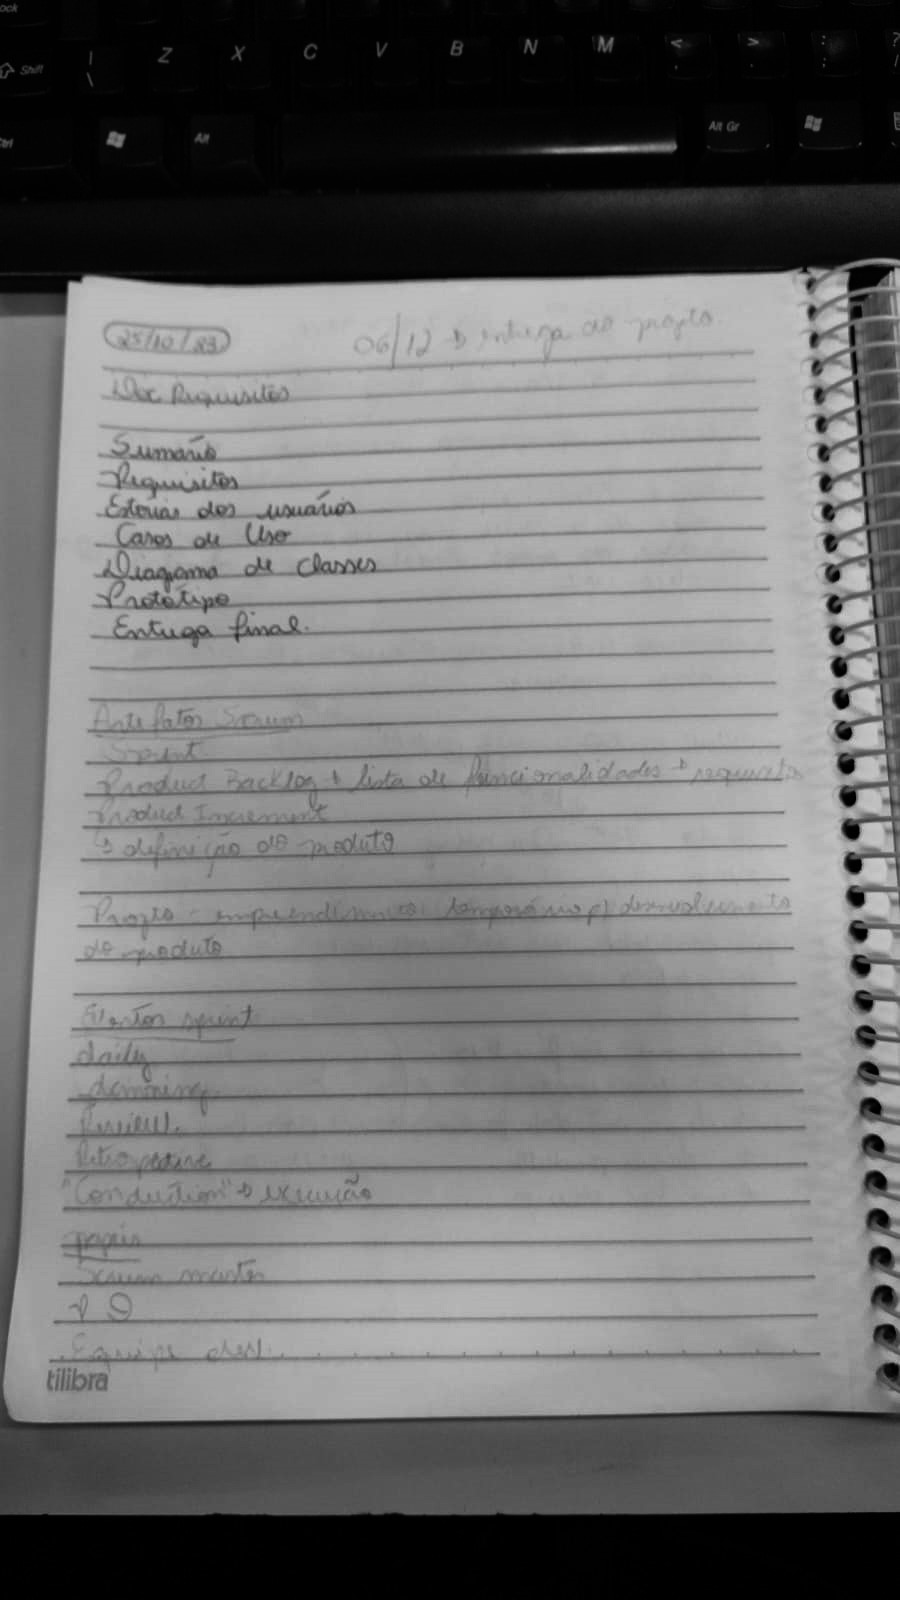 Shift | \ Z X C V B N M < , > . : ; ?
Ctrl Alt Alt Gr
25/10/23 06/12 → entrega do projeto.
Doc Requisitos
Sumário
Requisitos
Estorias dos usuários
Casos de Uso
Diagrama de classes
Protótipo
Entrega final.
Artefatos Scrum
Sprint
Product Backlog → lista de funcionalidades → requisitos
Product Increment
↳ definição do produto
Projeto - empreendimento temporário p/ desenvolvimento
do produto
Eventos sprint
daily
Review.
Retrospective
"Conduction" → execução
papeis
Scrum master
P O
Equipe des.
tilibra